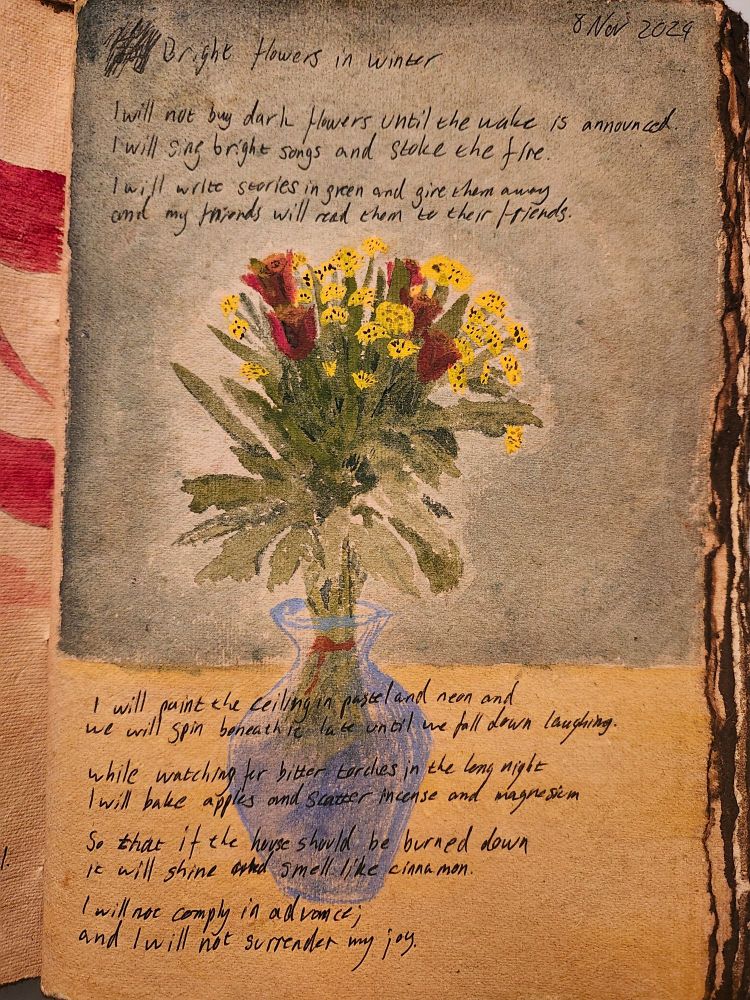 8 Nov 2024
Bright flowers in winter
I will not buy dark flowers until the wake is announced.
I will sing bright songs and stoke the fire.
I will write stories in green and give them away
and my friends will read them to their friends.
I will paint the ceiling in pastel and neon and
we will spin beneath it late until we fall down laughing.
while watching for bitter torches in the long night
I will bake apples and scatter incense and magnesium
So that if the house should be burned down
it will shine and smell like cinnamon.
I will not comply in advance;
and I will not surrender my joy.